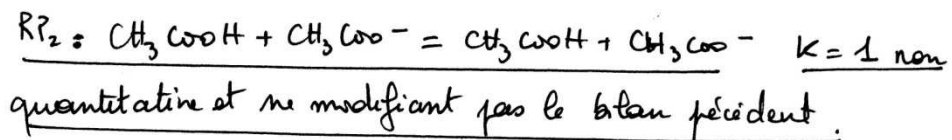 RP₂ : CH₃COOH + CH₃COO⁻ = CH₃COOH + CH₃COO⁻ K = 1 non
quantitative et ne modifiant pas le bilan pécédent.